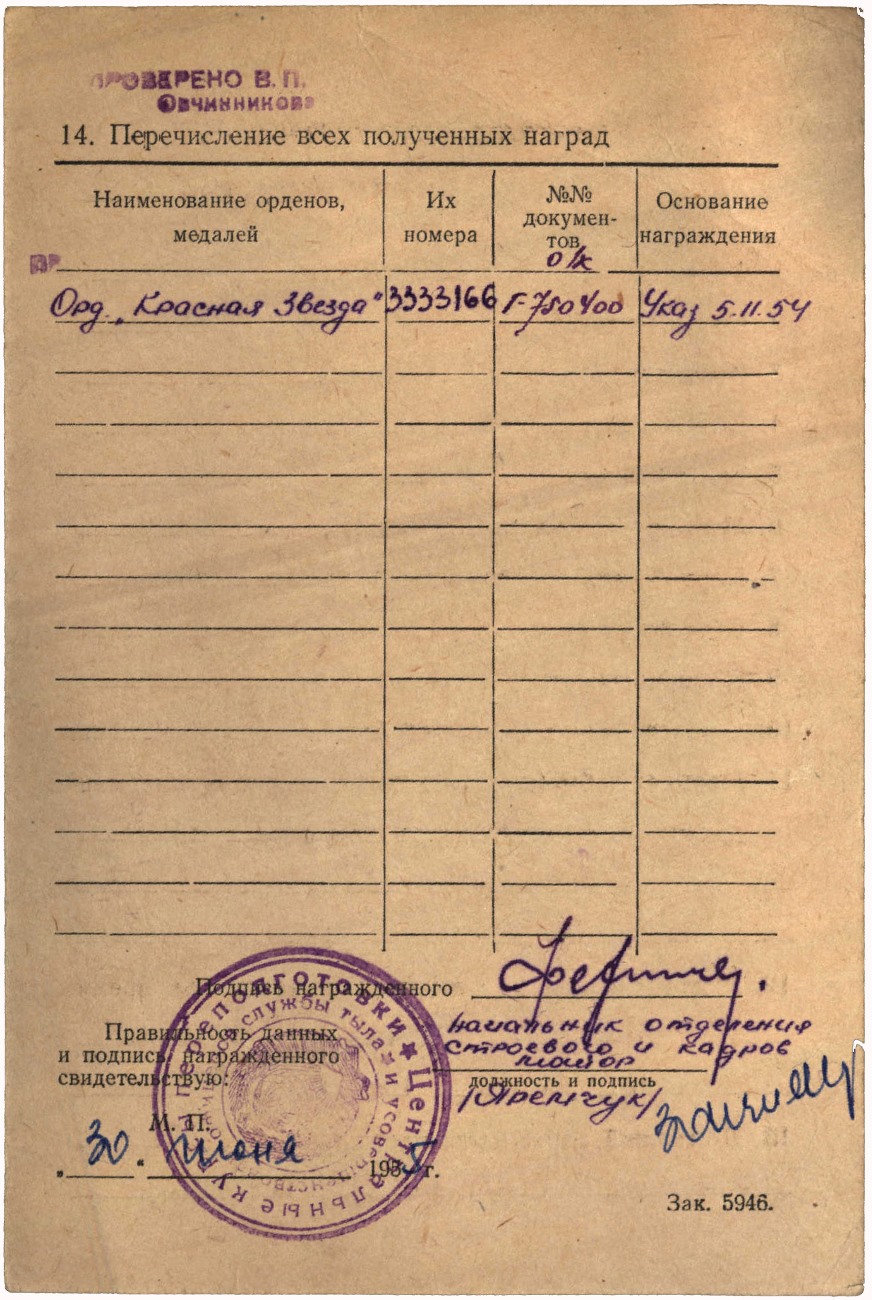 ПРОВЕРЕНО В. П.
Овчинникова
14. Перечисление всех полученных наград
Наименование орденов, медалей
Их номера
№№ документов
о/к
Основание награждения
Орд. „Красная Звезда" 3333166 Г-750400 Указ 5.11.54
Подпись награжденного
Правильность данных
и подпись награжденного
свидетельствую:
начальник отделения
строевого и кадров
майор
должность и подпись
/Яремчук/
М. П.
„30" июня 1955 г.
Зак. 5946.